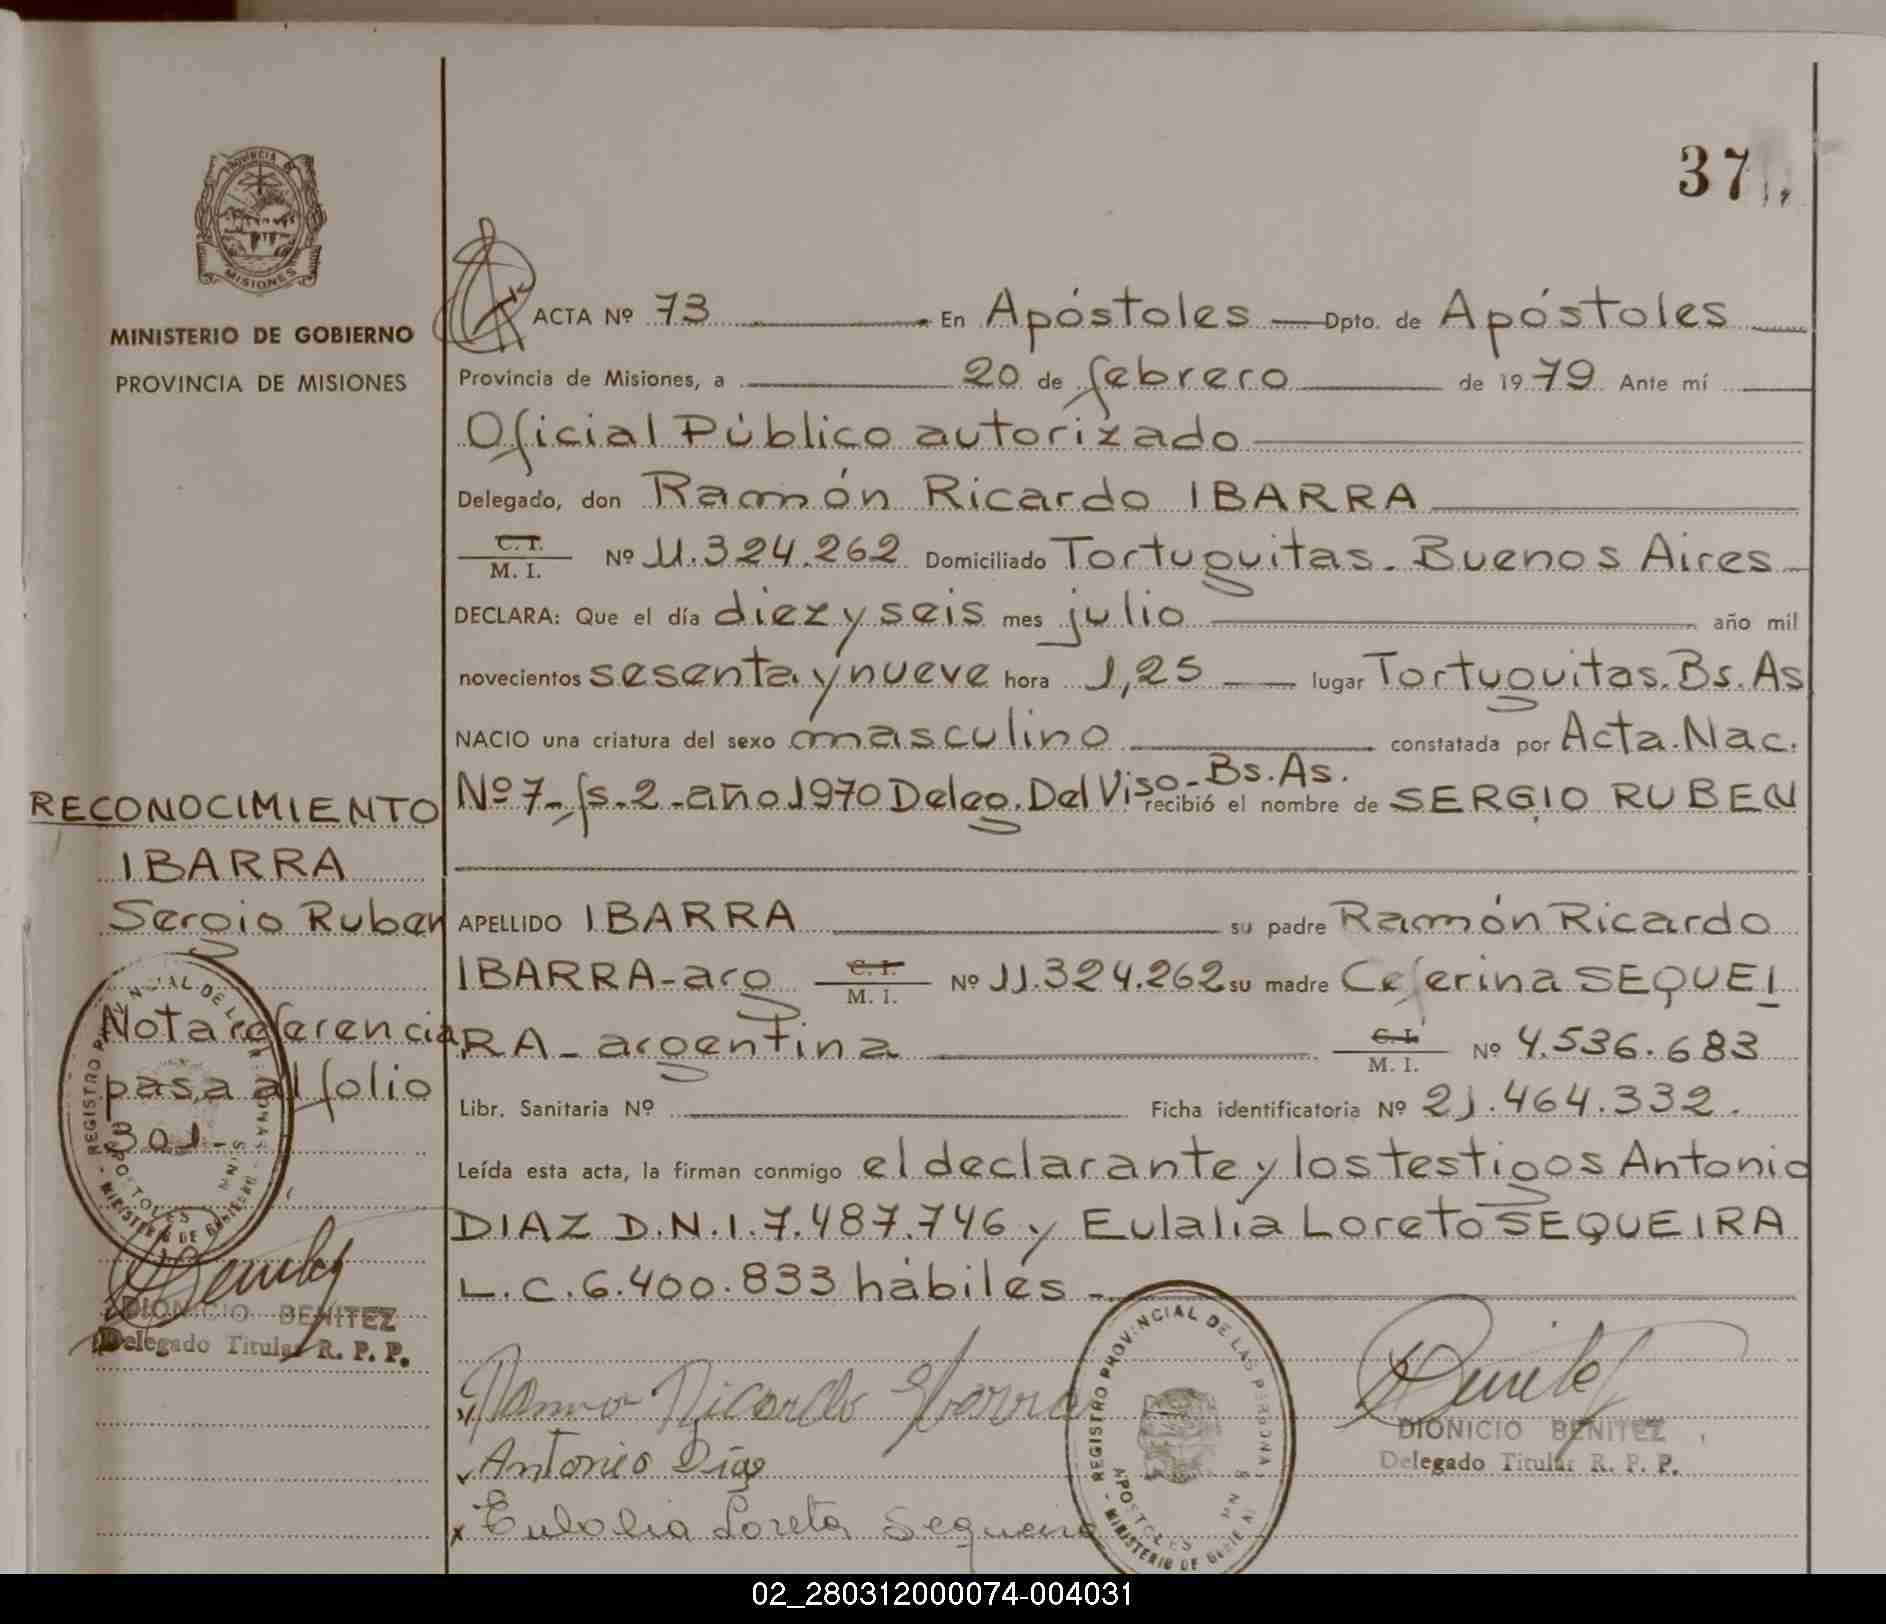 37
PROVINCIA DE
MISIONES
MINISTERIO DE GOBIERNO
PROVINCIA DE MISIONES
ACTA Nº 73 En Apóstoles Dpto. de Apóstoles
Provincia de Misiones, a 20 de febrero de 1979 Ante mí
Oficial Público autorizado
Delegado, don Ramón Ricardo IBARRA
C. I.
M. I. Nº 11.324.262 Domiciliado Tortuguitas. Buenos Aires
DECLARA: Que el día diez y seis mes julio año mil
novecientos sesenta y nueve hora 1,25 lugar Tortuguitas. Bs. As
NACIO una criatura del sexo masculino constatada por Acta. Nac.
Nº 7- fs-2-año 1970 Deleg. Del Viso-Bs. As. recibió el nombre de SERGIO RUBEN
APELLIDO IBARRA su padre Ramón Ricardo
IBARRA-arg C. I. M. I. Nº 11.324.262 su madre Ceferina SEQUEI
RA- argentina C. I. M. I. Nº 4.536.683
Libr. Sanitaria Nº Ficha identificatoria Nº 21.464.332.
Leída esta acta, la firman conmigo el declarante y los testigos Antonio
DIAZ D.N.I. 7.487.746 y Eulalia Loreto SEQUEIRA
L.C. 6.400.833 hábiles-
RECONOCIMIENTO
IBARRA
Sergio Ruben
Nota referencia
pasa al folio
301-
REGISTRO PROVINCIAL DE LAS PERSONAS
APOSTOLES MNS
MINISTERIO DE GOBIERNO
Benitez
DIONICIO BENITEZ
Delegado Titular R. P. P.
Ramon Ricardo Ibarra
Antonio Díaz
Eulalia Loreta Sequeira
REGISTRO PROVINCIAL DE LAS PERSONAS
APOSTOLES MNS
MINISTERIO DE GOBIERNO
Benitez
DIONICIO BENITEZ
Delegado Titular R. P. P.
02_280312000074-004031